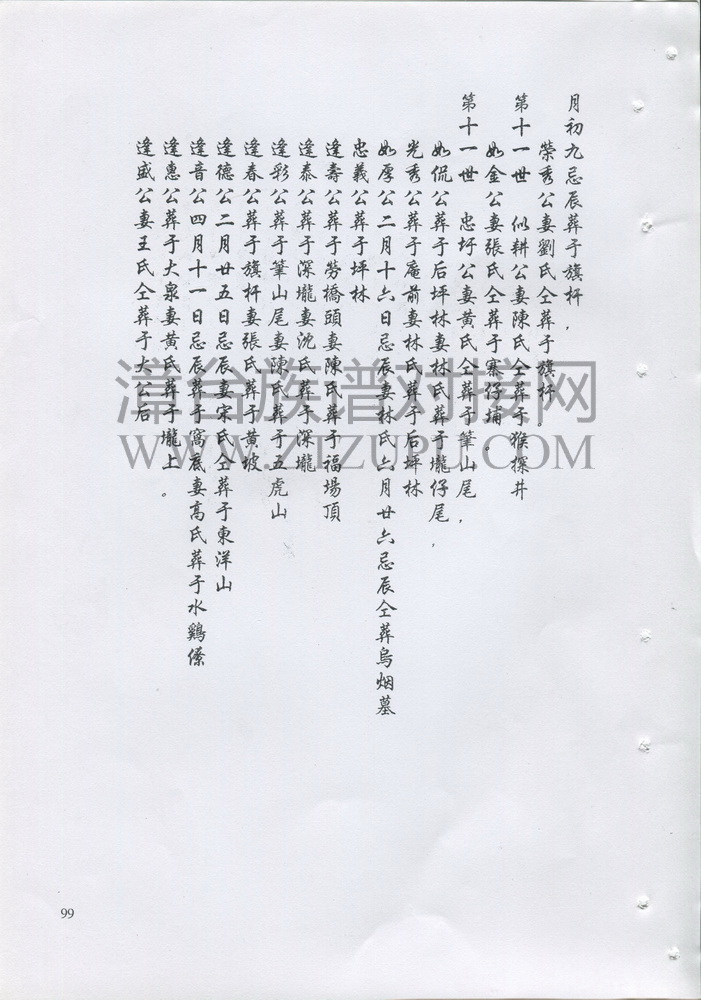 月初九忌辰葬于旗杆，
榮秀公妻劉氏仝葬于旗杆。
第十一世 似耕公妻陳氏仝葬于猴探井
如金公妻張氏仝葬于寨仔埔。
第十一世 忠圩公妻黄氏仝葬于筆山尾，
如侃公葬于后坪林妻林氏葬于壠仔尾，
光秀公葬于庵前妻林氏葬于后坪林
如厚公二月十六日忌辰妻林氏六月廿六忌辰仝葬烏烟墓
忠義公葬于坪林
逢壽公葬于勞橋頭妻陳氏葬于福場頂
逢泰公葬于深壠妻沈氏葬于深壠
逢彩公葬于筆山尾妻陳氏葬于五虎山
逢春公葬于旗杆妻張氏葬于黄坡
逢德公二月廿五日忌辰妻宋氏仝葬于東洋山
逢音公四月十一日忌辰葬于窩底妻高氏葬于水鷄傺
逢惠公葬于大泉妻黄氏葬于壠上。
逢盛公妻王氏仝葬于大公后
漳台族谱对接网
WWW.ZTZUPU.COM
99